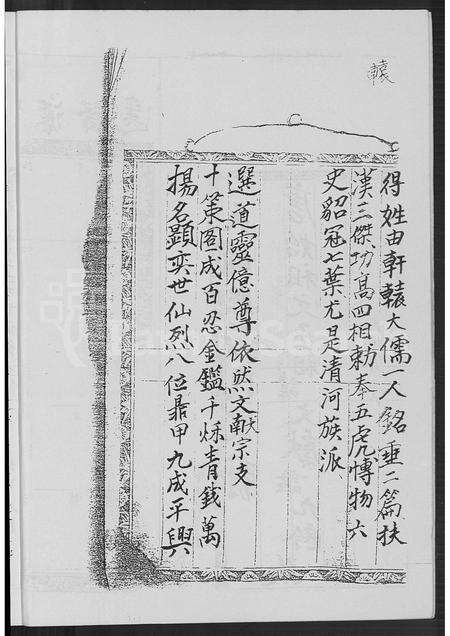 轅
得姓由軒轅大儒一人銘垂二篇扶
漢三傑功高四相勅奉五虎博物六
史貂冠七葉尤是清河族派
選道靈億尊依然文獻宗支
十策圖成百忍金鑑千爍青錢萬
揚名顕奕世仙烈八位鼎甲九成平興